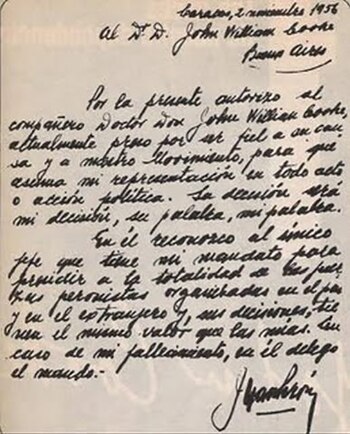 Caracas, 2 noviembre 1956
Al Dr. D. John William Cooke
Buenos Aires
Por la presente autorizo al
compañero Doctor Don John William Cooke,
actualmente preso por ser fiel a su cau-
sa y a nuestro Movimiento, para que
asuma mi representación en todo acto
o acción política. Su decisión será
mi decisión, su palabra, mi palabra.
En él reconozco al único
jefe que tiene mi mandato para
presidir a la totalidad de las fuer-
zas peronistas organizadas en el país
y en el extranjero y, sus decisiones, tie-
nen el mismo valor que las mías. En
caso de mi fallecimiento, en él delego
el mando.-
Juan Perón